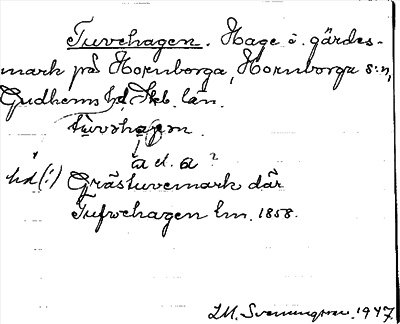 Tuvehagen. Hage ö. gärdes-
mark på Hornborga, Hornborga s:n,
Gudhems hd, Skb. län.
tuvehagen.
a el. a ?
hd (!) Grästuvemark där
Tufvehagen lm. 1858.
I.M. Svenningsson. 1947.